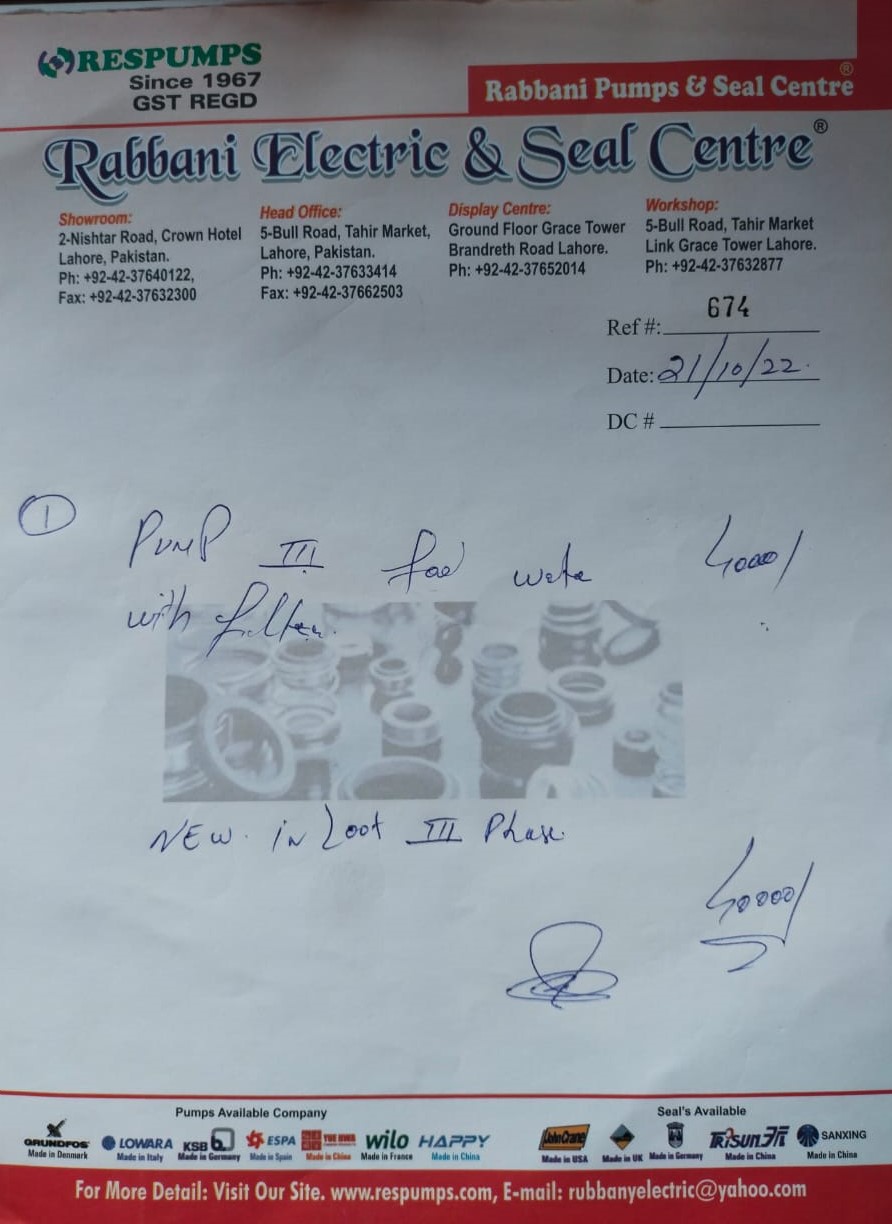 RESPUMPS
Since 1967
GST REGD
Rabbani Pumps & Seal Centre®
Rabbani Electric & Seal Centre®
Showroom:
2-Nishtar Road, Crown Hotel
Lahore, Pakistan.
Ph: +92-42-37640122,
Fax: +92-42-37632300
Head Office:
5-Bull Road, Tahir Market,
Lahore, Pakistan.
Ph: +92-42-37633414
Fax: +92-42-37662503
Display Centre:
Ground Floor Grace Tower
Brandreth Road Lahore.
Ph: +92-42-37652014
Workshop:
5-Bull Road, Tahir Market
Link Grace Tower Lahore.
Ph: +92-42-37632877
Ref #: 674
Date: 21/10/22
DC #
1 PUMP III
with
NEW. IN III Phase
Pumps Available Company
GRUNDFOS Made in Denmark
LOWARA Made in Italy
KSB Made in Germany
ESPA Made in Spain
Made in China
wilo Made in France
HAPPY Made in China
Seal's Available
John Crane Made in USA
Made in UK
Made in Germany
TRISUN Made in China
SANXING Made in China
For More Detail: Visit Our Site. www.respumps.com, E-mail: rubbanyelectric@yahoo.com